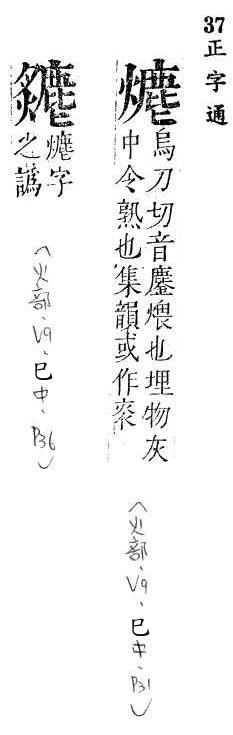 37正字通
熝
烏刀切音鏖煨也埋物灰
中令熟也集韻或作
（火部、V9、巳中、P31）
熝字
之譌
（火部、V9、巳中、P36）